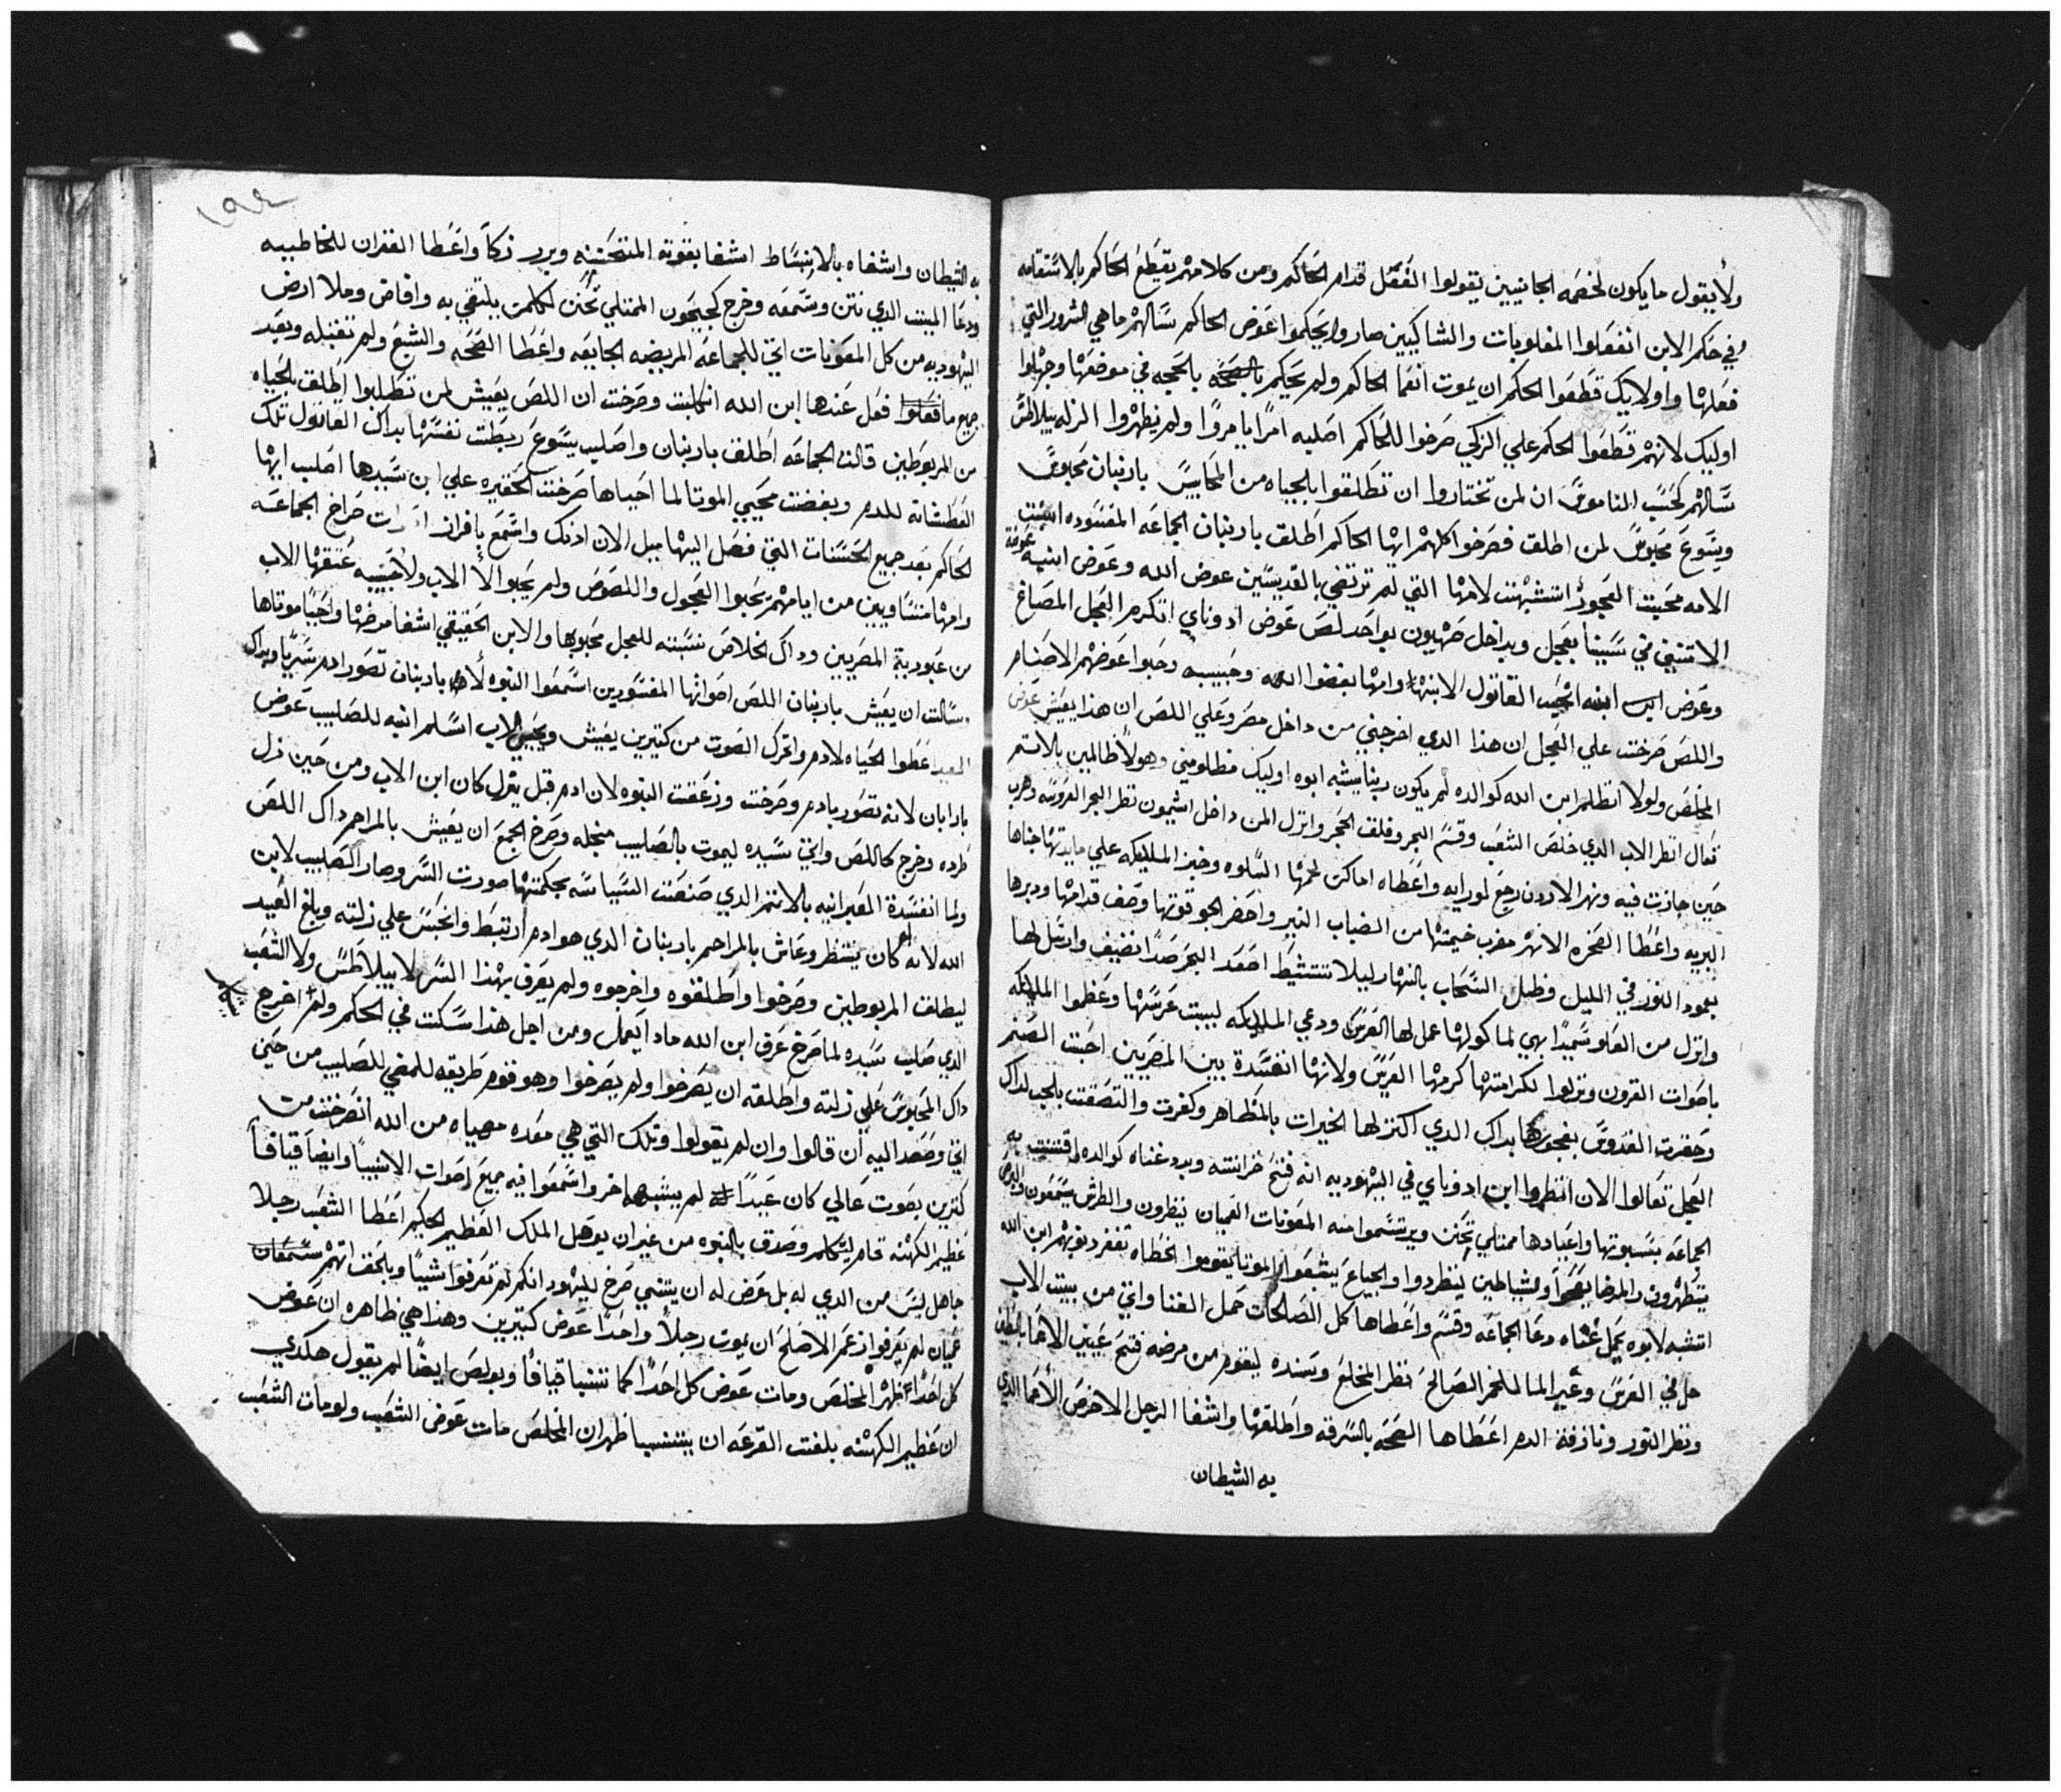 ولا يقول ما يكون لخصمه الجانبيين يقولوا الفعل قدام الحاكم ومن كلامهم يقطع الحاكم بالاستقامه
وفي حكم الابن انفعلوا المغلوبات والشاكيين صاروا يحكموا عوض الحاكم سالهم ما هي الشرور التي
فعلها واولايك قطعوا الحكم ان يموت انعما الحاكم ولم يحكم بالحجه في موضعها وجهلوا
اوليك لانهم قطعوا الحكم علي الزكي صرخوا للحاكم اصلبه امرًا يا مروًا ولم يظهروا الزله بيلاطس
سالهم كحسب الناموس ان لمن تختاروا ان تطلقوا بالحياه من المحابيس باربنان محبوس
ويسوع محبوس لمن اطلق فصرخوا كلهم ايها الحاكم اطلق باربنان الجماعه المفسوده
الامه محبت العجول اتشبهت لامها التي لم ترتضي بالقديسين عوض الله وعوض ابنيه
الاتنين في سينا بعجل وبداخل صهيون بواحد لص عوض ادوناي اتكرم العجل المصاغ
وعوض ابنه انحب القاتول الابنه وامها بغضوا الله وحبيبه وحبوا عوضهم الاصنام
واللص صرخت علي العجل ان هذا الدي اخرجني من داخل مصر وعلي اللص ان هذا يعيش عوض
المخلص ولولا انظلم ابن الله كوالده لم يكون ربنا بيشبه ابوه اوليك مظلوميني وهولا ظالمين بالاسم
تعال انظر الاب الدي خلص الشعب وقسم البحر وفلق الحجر وانزل المن داخل اشيمون نظر البحر العروسه وهرب
حين جازت فيه ونهر الاردن رجع لورايه واعطاه اماكن لحمها السلوه وخبز الملايكه علي مايدتها جناها
البريه واعطا الصخره الانهر مضرب خيمتها من الضباب النير واحضر الجو قوتها وصف قدامها ودبرها
بعمود النور في الليل وظلل السحاب بالنهار ليلا تتشيط اصعد البحر صدًا نضيف وارسل لها
وانزل من العلو سميدًا بهي لما كولها عمل لها العرس ودعي الملايكه لبيت عرسها وعظموا الملايكه
باصوات القرون ونزلوا لكرامتها كرمها العرس ولانها انفسدة بين المصريين احبت الصنم
وحقرت القدوس بفجورها بداك الدي اكنز لها الخيرات بالمظاهر وكفرت والتصقت بالحب لداك
العجل تعالوا الان انظروا ابن ادوناي في اليهوديه انه فتح خزانته وبدد غناه كوالده اقتنيت به
الجماعه بسبوتها واعيادها ممتلي تحنن ويرتسموا منه المعونات العميان ينظرون والطرش يسمعون والبرص
يتطهرون والمرضا يقوا والشياطين ينطردوا والجياع يشبعوا الموتا يقوموا الخطاه تغفر دنوبهم ابن الله
اتشبه لابوه يحمل غناه دعا الجماعه وقسم واعطاها كل الصالحات حمل الغنا واتي من بيت الاب
حل في العرس وغير الما للخمر الصالح نظر المخلع وسنده ليقوم من مرضه فتح عينين الاعما بالطين
ونظر النور ونازفة الدم اعطاها الصحه بالسرقه واطلقها واشفا الرجل الاخرص الاعما الدي
به الشيطان
١٩٤
به الشيطان واشفاه بالانبساط اشفا بقوته المتحننه وبرر زكا واعطا الغفران للخاطبيه
ودعا الميت الدي نتن وسمعه وخرج كجيحون الممتلي تحنن لكلمن يلتقي به وافاض وملا ارض
اليهوديه من كل المعونات اتي للجماعه المريضه الجايعه واعطا الصحه والشبع ولم تقبله وبعد
جميع ما فعل عندها ابن الله انكلبت وصرخت ان اللص يعيش لمن تطلبوا اطلق بالحياه
من المربوطين قالت الجماعه اطلق باربنان واصليب يسوع ربطت نفسها بداك القاتول تلك
العطشانه للدم وبغضت محيي الموتا لما احياها صرخت الحقيره علي ابن سيدها اصليب ايها
الحاكم بعد جميع الحسنات التي فعل اليها ميل الان ادنك واسمع بافراز اصوات صراخ الجماعه
وامها متساويين من ايامهم يحبوا العجول واللصوص ولم يحبوا لا الاب ولا حبيبه عتقها الاب
من عبودية المصريين وداك الخلاص نسبته للعجل محبوبها والابن الحقيقي اشفا مرضها واحيا موتاها
وسالت ان يعيش باربنان اللص اصواتها المفسودين اسمعوا النبوه لان باربنان تصور ادم سريًا وبداك
العيد عطوا الحياه لادم واتحرك الصوت من كتيرين يعيش ويحيي الاب اسلم ابنه للصليب عوض
بارابان لانه تصور بادم وصرخت وزعقت النبوه لان ادم قبل ينزل كان ابن الاب ومن حين نزل
طرده وخرج كاللص واتي سيده ليموت بالصليب منجله وصرخ الجمع ان يعيش بالمراحم داك اللص
ولما انفسدة العبرانيه بالاتمر الدي صنعت السياسه بحكمتها صورت السر وصار الصليب لابن
الله لانه كان ينتظر وعاش بالمراحم باربنان الدي هو ادم ارتبط وانحبس علي زلته وبلغ العيد
ليطلق المربوطين وصرخوا واطلقوه واخرجوه ولم يعرف بهذا السر لا بيلاطس ولا الشعب
الدي صليب سيده لما صرخ عرف ابن الله مادا يعمل ومن اجل هذا سكت في الحكم ولم اخرج
داك المحبوس علي زلته واطلقه ان يصرخوا ولم يصرخوا وهو قوم طريقه للمضي للصليب من حين
اتي وصعد اليه ان قالوا وان لم يقولوا وتلك التي هي معده مهياه من الله انصرخت من
كتيرين بصوت عالي كان عبدًا لم يشبه اخر واسمعوا فيه جميع اصوات الانبيا وايضا قيافا
عظيم الكهنه قام ليتكلم وصدق بالنبوه من غير ان يوهل الملك العظيم الحكيم اعطا الشعب رجلا
جاهل ليس من الدي له بل عرض له ان يتنبي صرخ لليهود انكم لم تعرفوا شيا وبالحق انهم سمعان
عميان لم يعرفوا ازعمر الاصلح ان يموت رجلاً واحدًا عوض كتيرين وهذا هي ظاهره ان عوض
كل احدًا اظهر المخلص ومات عوض كل احدًا كما تنبا قيافا وبولص ايضا لم يقول هكدي
ان عظيم الكهنه بلغت القرعه ان يتنبا ظهر ان المخلص مات عوض الشعب ولو مات الشعب